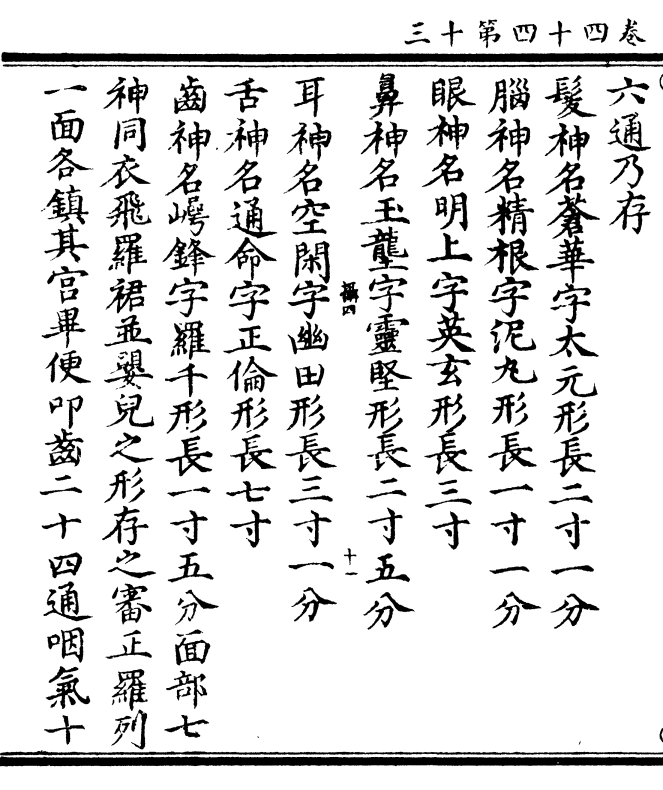 卷四十四第十三
六通乃存
髮神名蒼華字太元形長二寸一分
腦神名精根字泥丸形長一寸一分
眼神名明上字英玄形長三寸
鼻神名玉壟字靈堅形長二寸五分
十一
耳神名空閑字幽田形長三寸一分
舌神名通命字正倫形長七寸
齒神名崿鋒字羅千形長一寸五分面部七
神同衣飛羅裙並嬰兒之形存之審正羅列
一面各鎮其宮畢便叩齒二十四通咽氣十